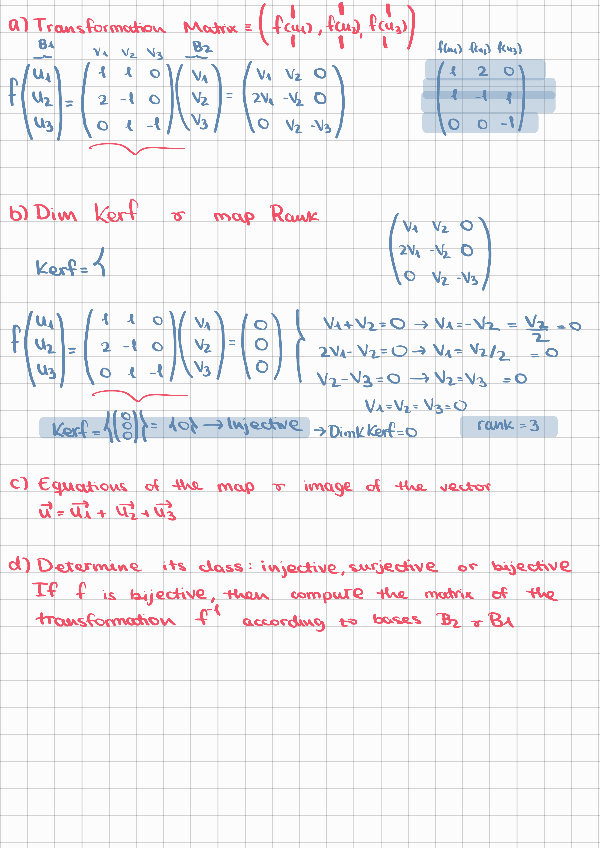 a) Transformation Matrix = (f(u₁), f(u₂), f(u₃))
B1 v₁ v₂ v₃ B2 f(u₁) f(u₂) f(u₃)
f (u₁ u₂ u₃) = (1 1 0 / 2 -1 0 / 0 1 -1) (v₁ v₂ v₃) = (v₁ v₂ 0 / 2v₁ -v₂ 0 / 0 v₂ -v₃) (1 2 0 / 1 -1 1 / 0 0 -1)
b) Dim Kerf r map Rank
(v₁ v₂ 0 / 2v₁ -v₂ 0 / 0 v₂ -v₃)
Kerf = {
f (u₁ u₂ u₃) = (1 1 0 / 2 -1 0 / 0 1 -1) (v₁ v₂ v₃) = (0 0 0)
{ v₁+v₂=0 → v₁=-v₂ = v₂/2 = 0
2v₁-v₂=0 → v₁=v₂/2 = 0
v₂-v₃=0 → v₂=v₃ = 0
v₁=v₂=v₃=0
Kerf = {(0 0 0)} = {0} → Injective → Dimk Kerf = 0 rank = 3
c) Equations of the map r image of the vector
u⃗ = u⃗₁ + u⃗₂ + u⃗₃
d) Determine its class: injective, surjective or bijective
If f is bijective, then compute the matrix of the
transformation f⁻¹ according to bases B2 r B1